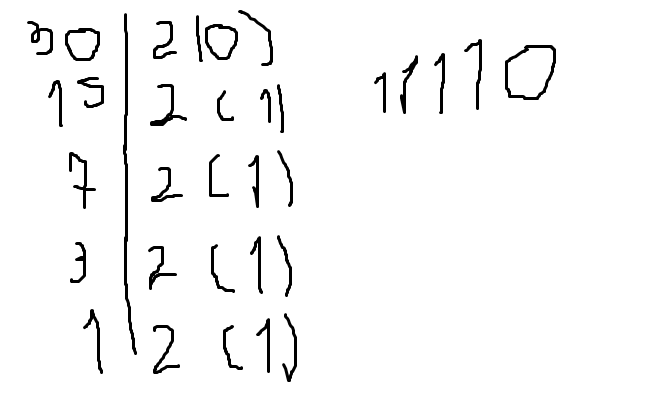 30 | 2 (0)
15 | 2 (1)
7 | 2 (1)
3 | 2 (1)
1 | 2 (1)
11110